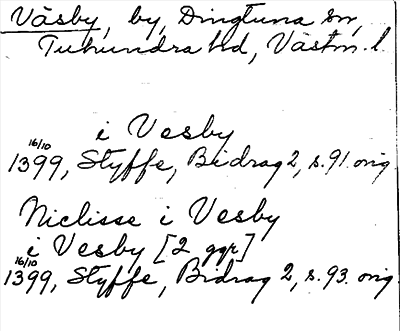 Väsby, by, Dingtuna sn,
Tuhundra hd, Västm. l.
i Vesby
16/10
1399, Styffe, Bidrag 2, s. 91. orig.
Niclisse i Vesby
i Vesby [2 ggr]
16/10
1399, Styffe, Bidrag 2, s. 93. orig.